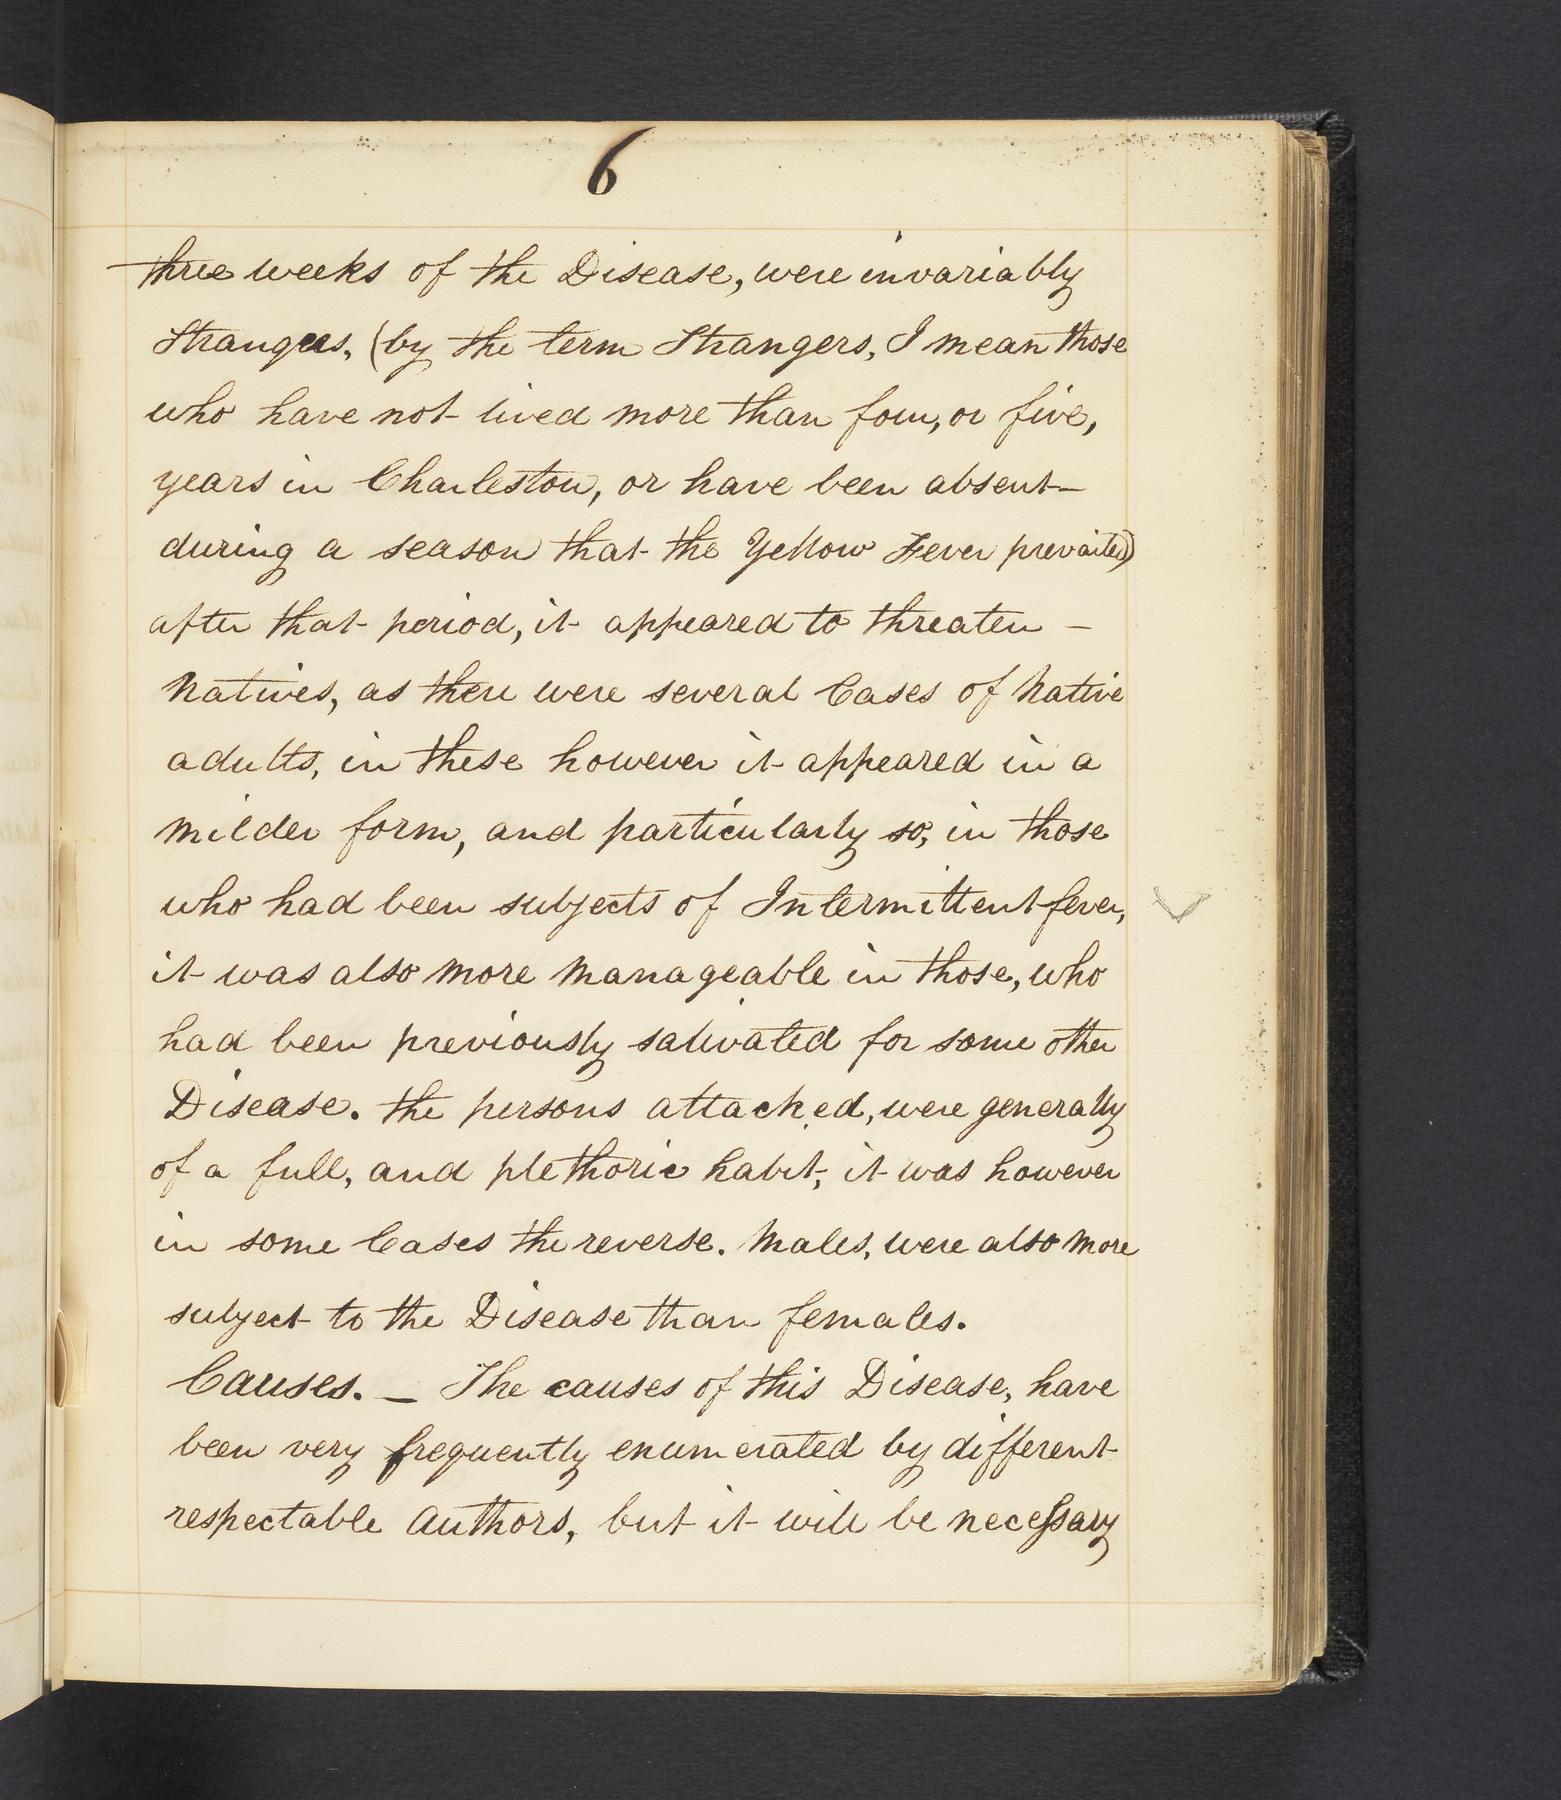 6
three weeks of the Disease, were invariably
Strangers, (by the term Strangers, I mean those
who have not lived more than four, or five,
years in Charleston, or have been absent
during a season that the Yellow Fever prevailed)
after that period, it appeared to threaten –
Natives, as there were several Cases of Native
adults, in these however it appeared in a
milder form, and particularly so, in those
who had been subjects of Intermittent fever,
it was also more manageable in those, who
had been previously salivated for some other
Disease. the persons attacked, were generally
of a full, and plethoric habit, it was however
in some Cases the reverse. Males, were also more
subject to the Disease than females.
Causes. – The causes of this Disease, have
been very frequently enumerated by different
respectable Authors, but it will be necessary